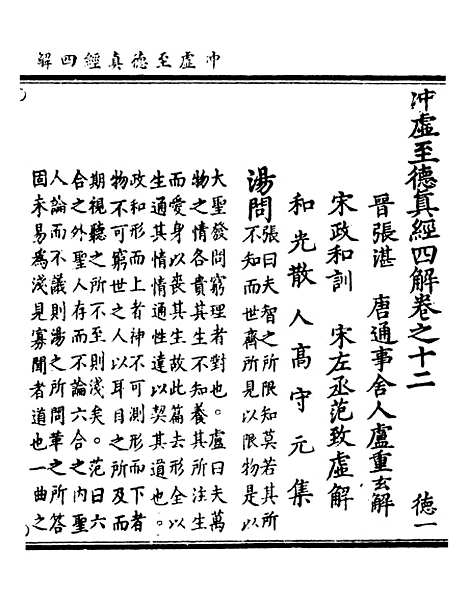 冲虛至德真經四解
冲虛至德真經四解卷之十二
德一
晉張湛　唐通事舍人盧重玄解
宋政和訓　宋左丞范致虛解
和光散人高守元集
湯問張曰夫智之所限知莫若其所
不知而世齊所見以限物是以
大聖發問窮理者對也。盧曰夫萬
物之情各貴其生不知養其所注生
而愛身以喪其生故此篇去形全以
生通其情情通性達以契其道也。
政和形而上者神不可測形而下者
物不可窮世之人以耳目之所及而
期視聽之所不至則淺矣。范曰六
合之外聖人存而不論六合之內聖
人論而不議則湯之所問革之所答
固未易為淺見寡聞者道也一曲之